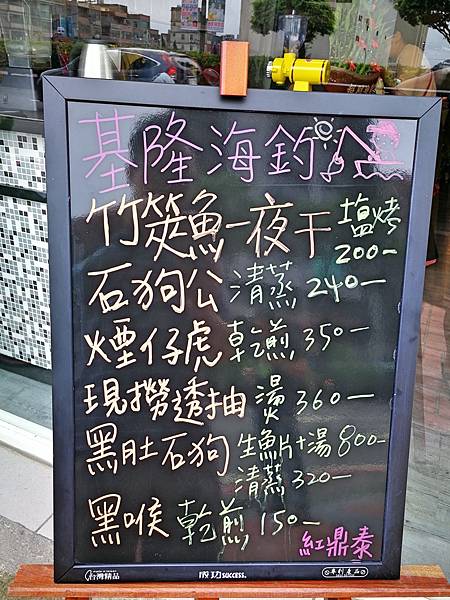 基隆海釣
竹筴魚一夜干 塩烤
200-
石狗公 清蒸 240-
煙仔虎 乾煎 350-
現撈透抽 燙 360-
黑肚石狗 生魚片+湯 800-
清蒸 320-
黑喉 乾煎 150-
紅鼎泰
台灣精品 成功 SUCCESS. 專利產品